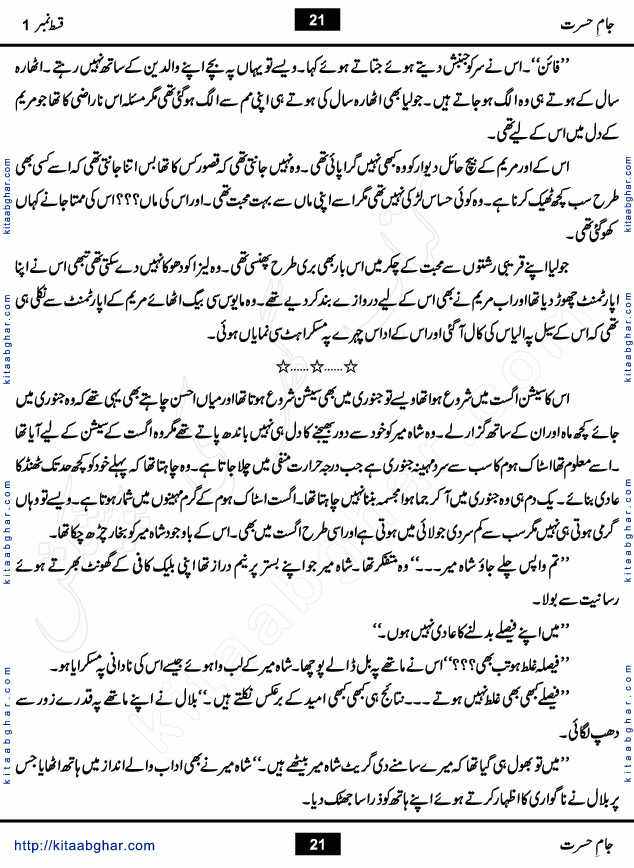 جامِ حسرت 21 قسط نمبر 1
’’فائن‘‘۔ اس نے سر کو جنبش دیتے ہوئے جتاتے ہوئے کہا۔ ویسے تو یہاں پہ بچے اپنے والدین کے ساتھ نہیں رہتے۔ اٹھارہ
سال کے ہوتے ہی وہ الگ ہو جاتے ہیں۔ جولیا بھی اٹھارہ سال کی ہوتے ہی اپنی مم سے الگ ہو گئی تھی مگر مسئلہ اس ناراضی کا تھا جو مریم
کے دل میں اس کے لیے تھی۔
اس کے اور مریم کے بیچ حائل دیوار کو وہ کبھی نہیں گرا پائی تھی۔ وہ نہیں جانتی تھی کہ قصور کس کا تھا بس اتنا جانتی تھی کہ اسے کسی بھی
طرح سب کچھ ٹھیک کرنا ہے۔ وہ کوئی حساس لڑکی نہیں تھی مگر اسے اپنی ماں سے بہت محبت تھی۔ اور اس کی ماں؟؟؟ اس کی ممتا جانے کہاں
کھو گئی تھی۔
جولیا اپنے قریبی رشتوں سے محبت کے چکر میں اس بار بھی بری طرح پھنسی تھی۔ وہ لیزا کو دھوکا نہیں دے سکتی تھی تبھی اس نے اپنا
اپارٹمنٹ چھوڑ دیا تھا اور اب مریم نے بھی اس کے لیے دروازے بند کر دیے تھے۔ وہ مایوس سی بیگ اٹھائے مریم کے اپارٹمنٹ سے نکلی ہی
تھی کہ اس کے سیل پہ الیاس کی کال آ گئی اور اس کے اداس چہرے پہ مسکراہٹ سی نمایاں ہوئی۔
☆......☆......☆
اس کا سیشن اگست میں شروع ہوا تھا ویسے تو جنوری میں بھی سیشن شروع ہوتا تھا اور میاں احسن چاہتے بھی یہی تھے کہ وہ جنوری میں
جائے کچھ ماہ اور ان کے ساتھ گزار لے۔ وہ شاہ میر کو خود سے دور بھیجنے کا دل ہی نہیں باندھ پاتے تھے مگر وہ اگست کے سیشن کے لیے آیا تھا
۔ اسے معلوم تھا اسٹاک ہوم کا سب سے سرد مہینہ جنوری ہے جب درجہ حرارت منفی میں چلا جاتا ہے۔ وہ چاہتا تھا کہ پہلے خود کو کچھ حد تک ٹھنڈ کا
عادی بنائے۔ یک دم ہی وہ جنوری میں آ کر جما ہوا مجسمہ بننا نہیں چاہتا تھا۔ اگست اسٹاک ہوم کے گرم مہینوں میں شمار ہوتا ہے۔ ویسے تو وہاں
گرمی ہوتی ہی نہیں مگر سب سے کم سردی جولائی میں ہوتی ہے اور اسی طرح اگست میں بھی۔ اس کے باوجود شاہ میر کو بخار چڑھ چکا تھا۔
’’تم واپس چلے جاؤ شاہ میر۔۔۔‘‘ وہ متفکر تھا۔ شاہ میر جو اپنے بستر پر نیم دراز تھا اپنی بلیک کافی کے گھونٹ بھرتے ہوئے
رسانیت سے بولا۔
’’میں اپنے فیصلے بدلنے کا عادی نہیں ہوں۔‘‘
’’فیصلہ غلط ہو تب بھی؟؟؟‘‘ اس نے ماتھے پہ بل ڈالے پوچھا۔ شاہ میر کے لب وا ہوئے جیسے اس کی نادانی پہ مسکرایا ہو۔
’’فیصلے کبھی بھی غلط نہیں ہوتے۔۔۔ نتائج ہی کبھی کبھی امید کے برعکس نکلتے ہیں۔‘‘ بلال نے اپنے ماتھے پہ قدرے زور سے
دھپ لگائی۔
’’میں تو بھول ہی گیا تھا کہ میرے سامنے دی گریٹ شاہ میر بیٹھے ہیں۔‘‘ شاہ میر نے بھی اداب والے انداز میں ہاتھ اٹھایا جس
پر بلال نے ناگواری کا اظہار کرتے ہوئے اپنے ہاتھ کو ذرا سا جھٹک دیا۔
جامِ حسرت 21 http://kitaabghar.com
kitaabghar.com kitaabghar.com kitaabghar.com kitaabghar.com
kitaabghar.com kitaabghar.com kitaabghar.com kitaabghar.com
kitaabghar.com